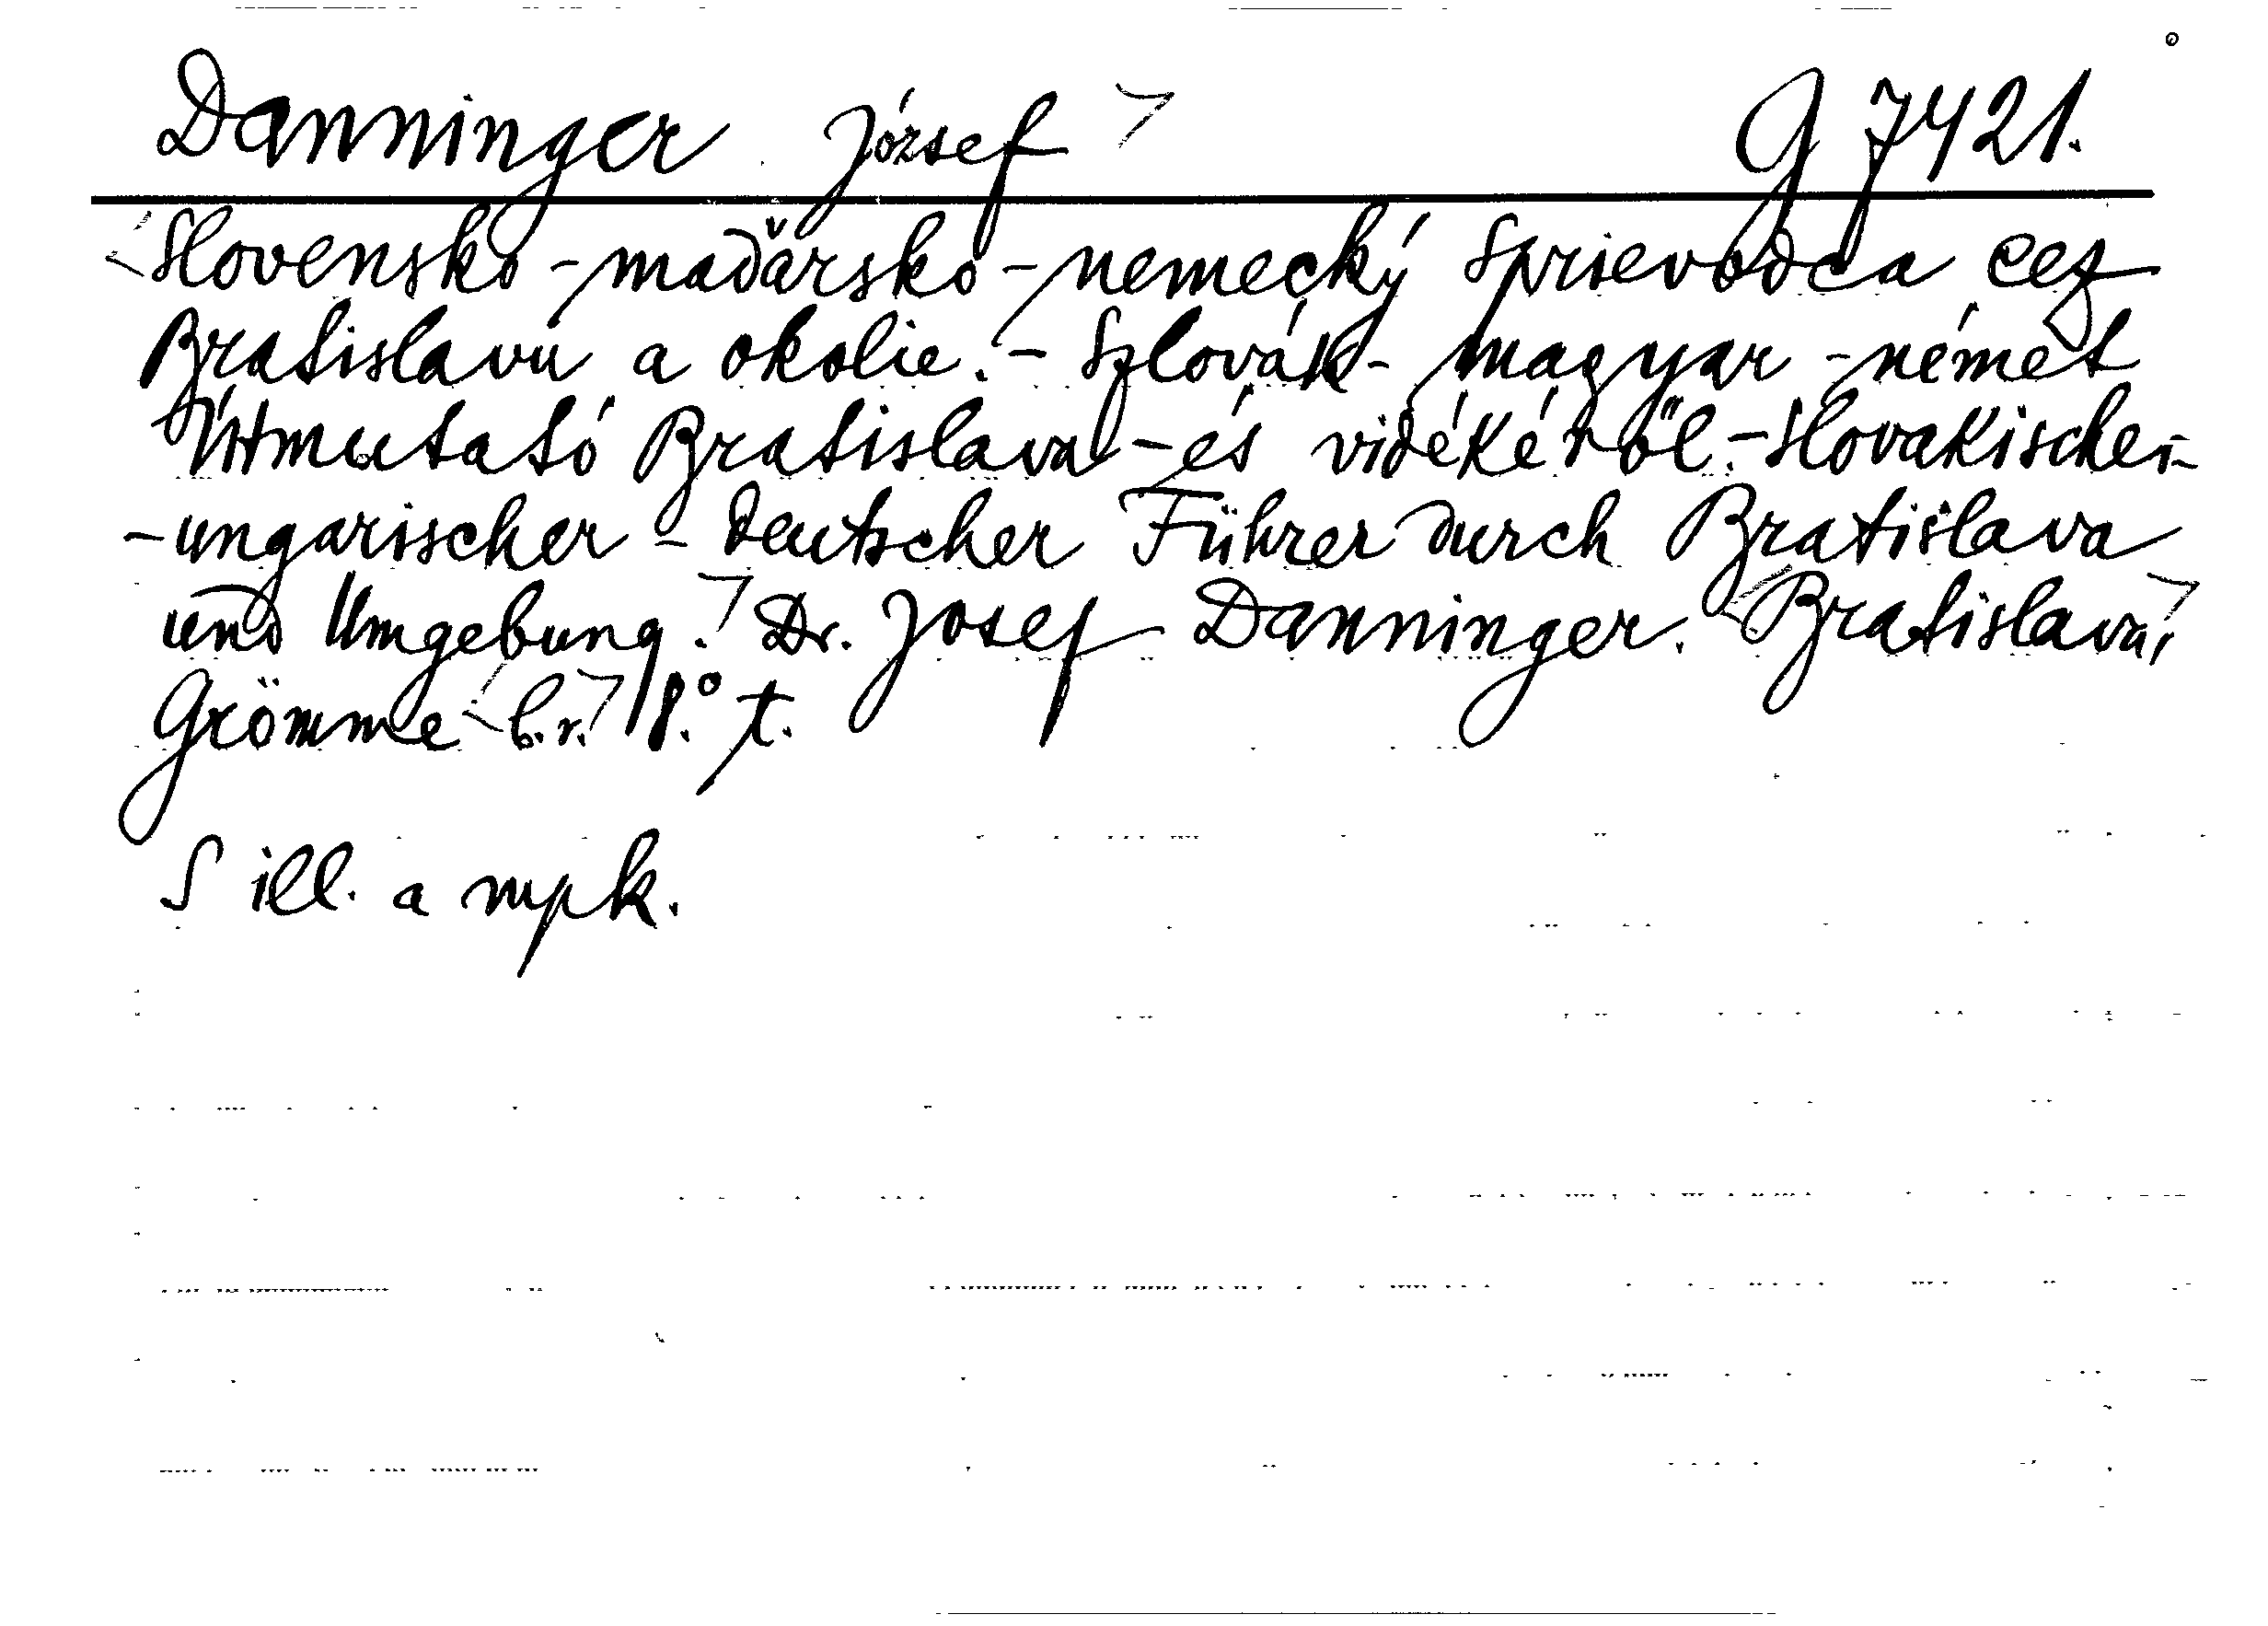 Danninger József G 7421.
Slovensko-maďarsko-nemecký Sprievodca cez
Bratislavu a okolie. - Szlovák-magyar-német
Útmutató Bratislava - és vidékéről. - Slovakischer-
-ungarischer - deutscher Führer durch Bratislava
und Umgebung. Dr. Josef Danninger. Bratislava,
Grömme b.r. 8.° t.
S ill. a mpk.